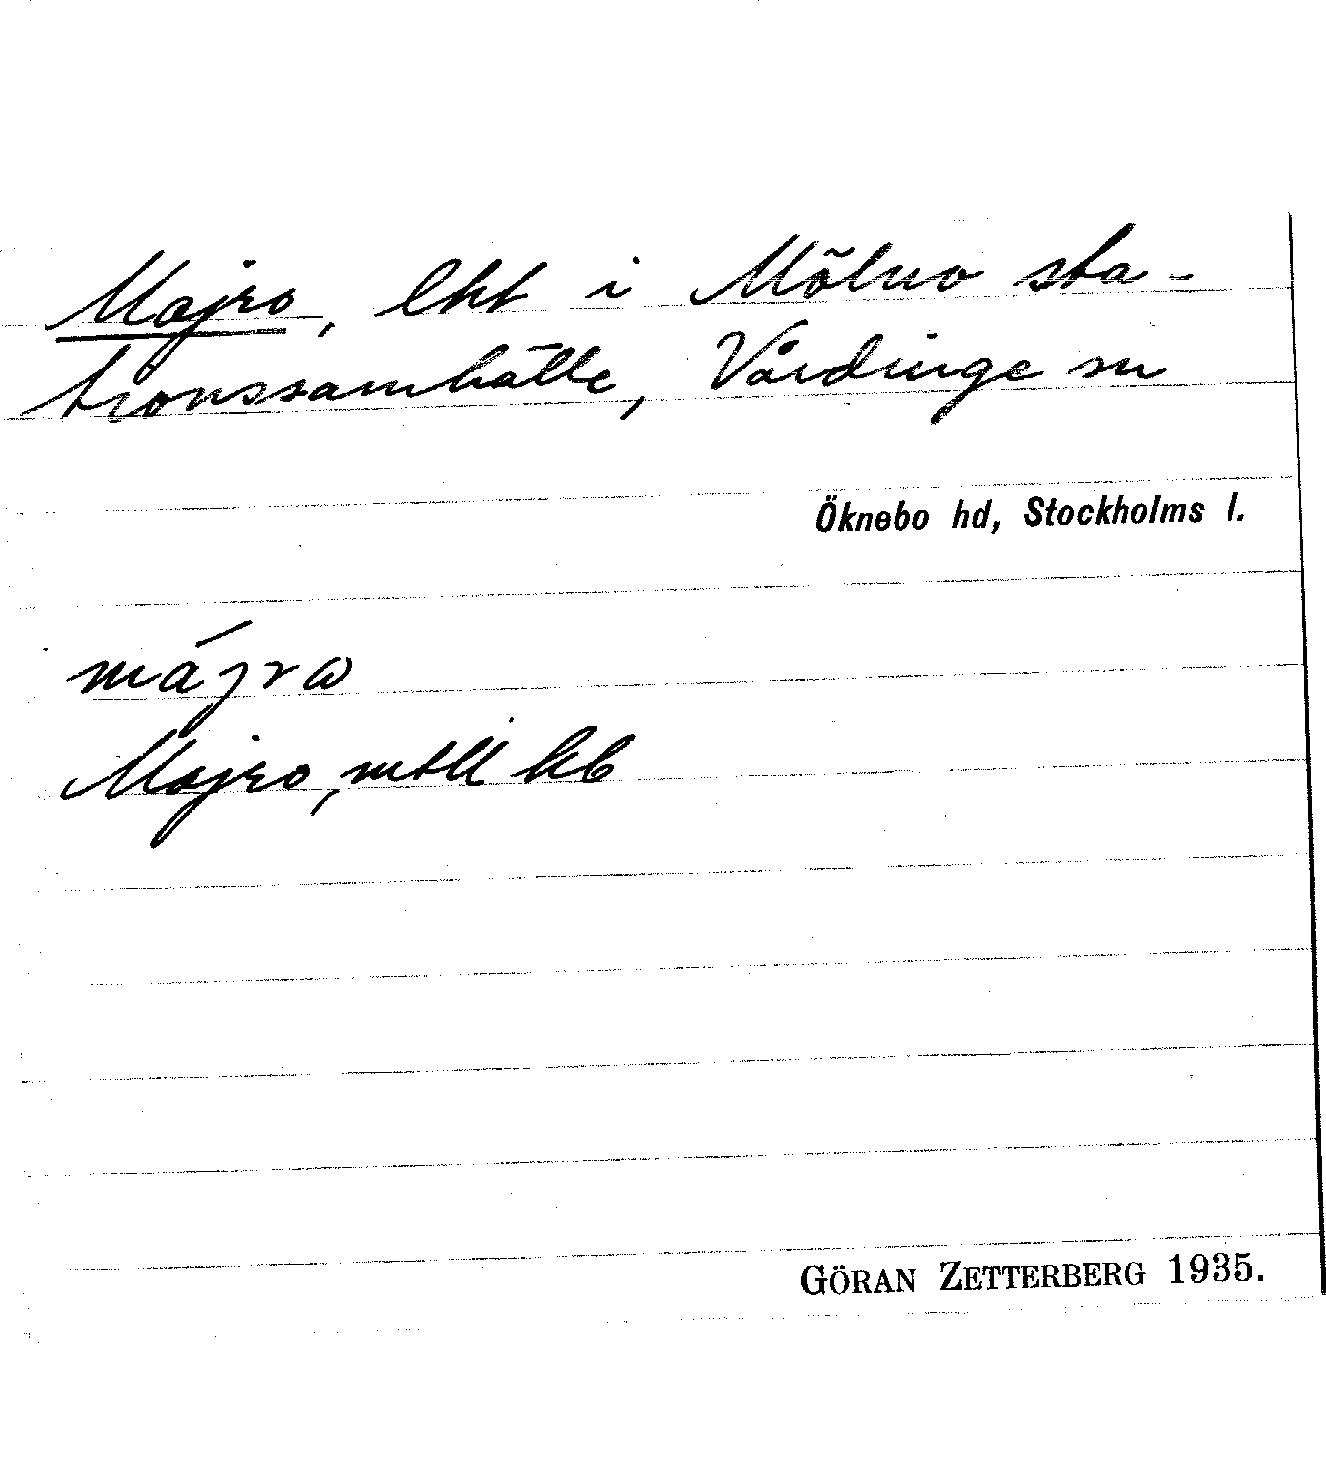 Majro, lht i Mölnbo sta-
tionssamhälle, Vårdinge sn
Öknebo hd, Stockholms l.
májrω
Majro, mtll kb
GÖRAN ZETTERBERG 1935.